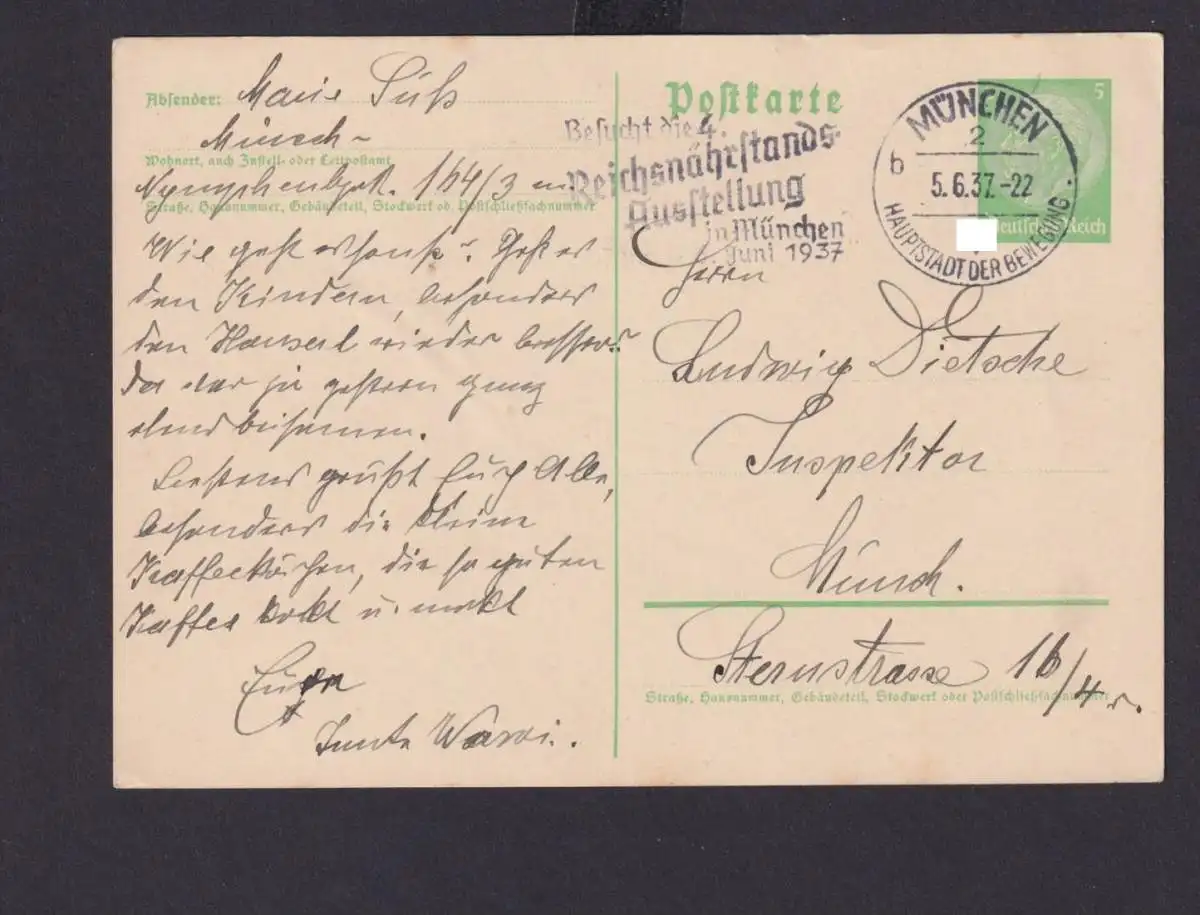 Absender: Marie Süß
Münch-
Wohnort, auch Zustell- oder Leitpostamt
Nymphenbgstr. 164/3
Straße, Hausnummer, Gebäudeteil, Stockwerk od. Postschließfachnummer
Wie geht es sonst? Geht es
den Kindern, besonders
den Hanserl wieder besser?
Da war ja gestern ganz
elend beisammen.
Bestens grüßt Euch Alle,
besonders die kleine
Kaffeeköchin, die so guten
Kaffee kocht u.
Eure
Tante
Postkarte
Besucht die 4.
Reichsnährstands-
Ausstellung
in München
Juni 1937
MÜNCHEN
2
b
5.6.37.-22
HAUPTSTADT DER BEWEGUNG
5
Deutsches Reich
Herrn
Ludwig Dietsche
Inspektor
Münch.
Sternstrasse 16/4 r.
Straße, Hausnummer, Gebäudeteil, Stockwerk oder Postschließfachnummer